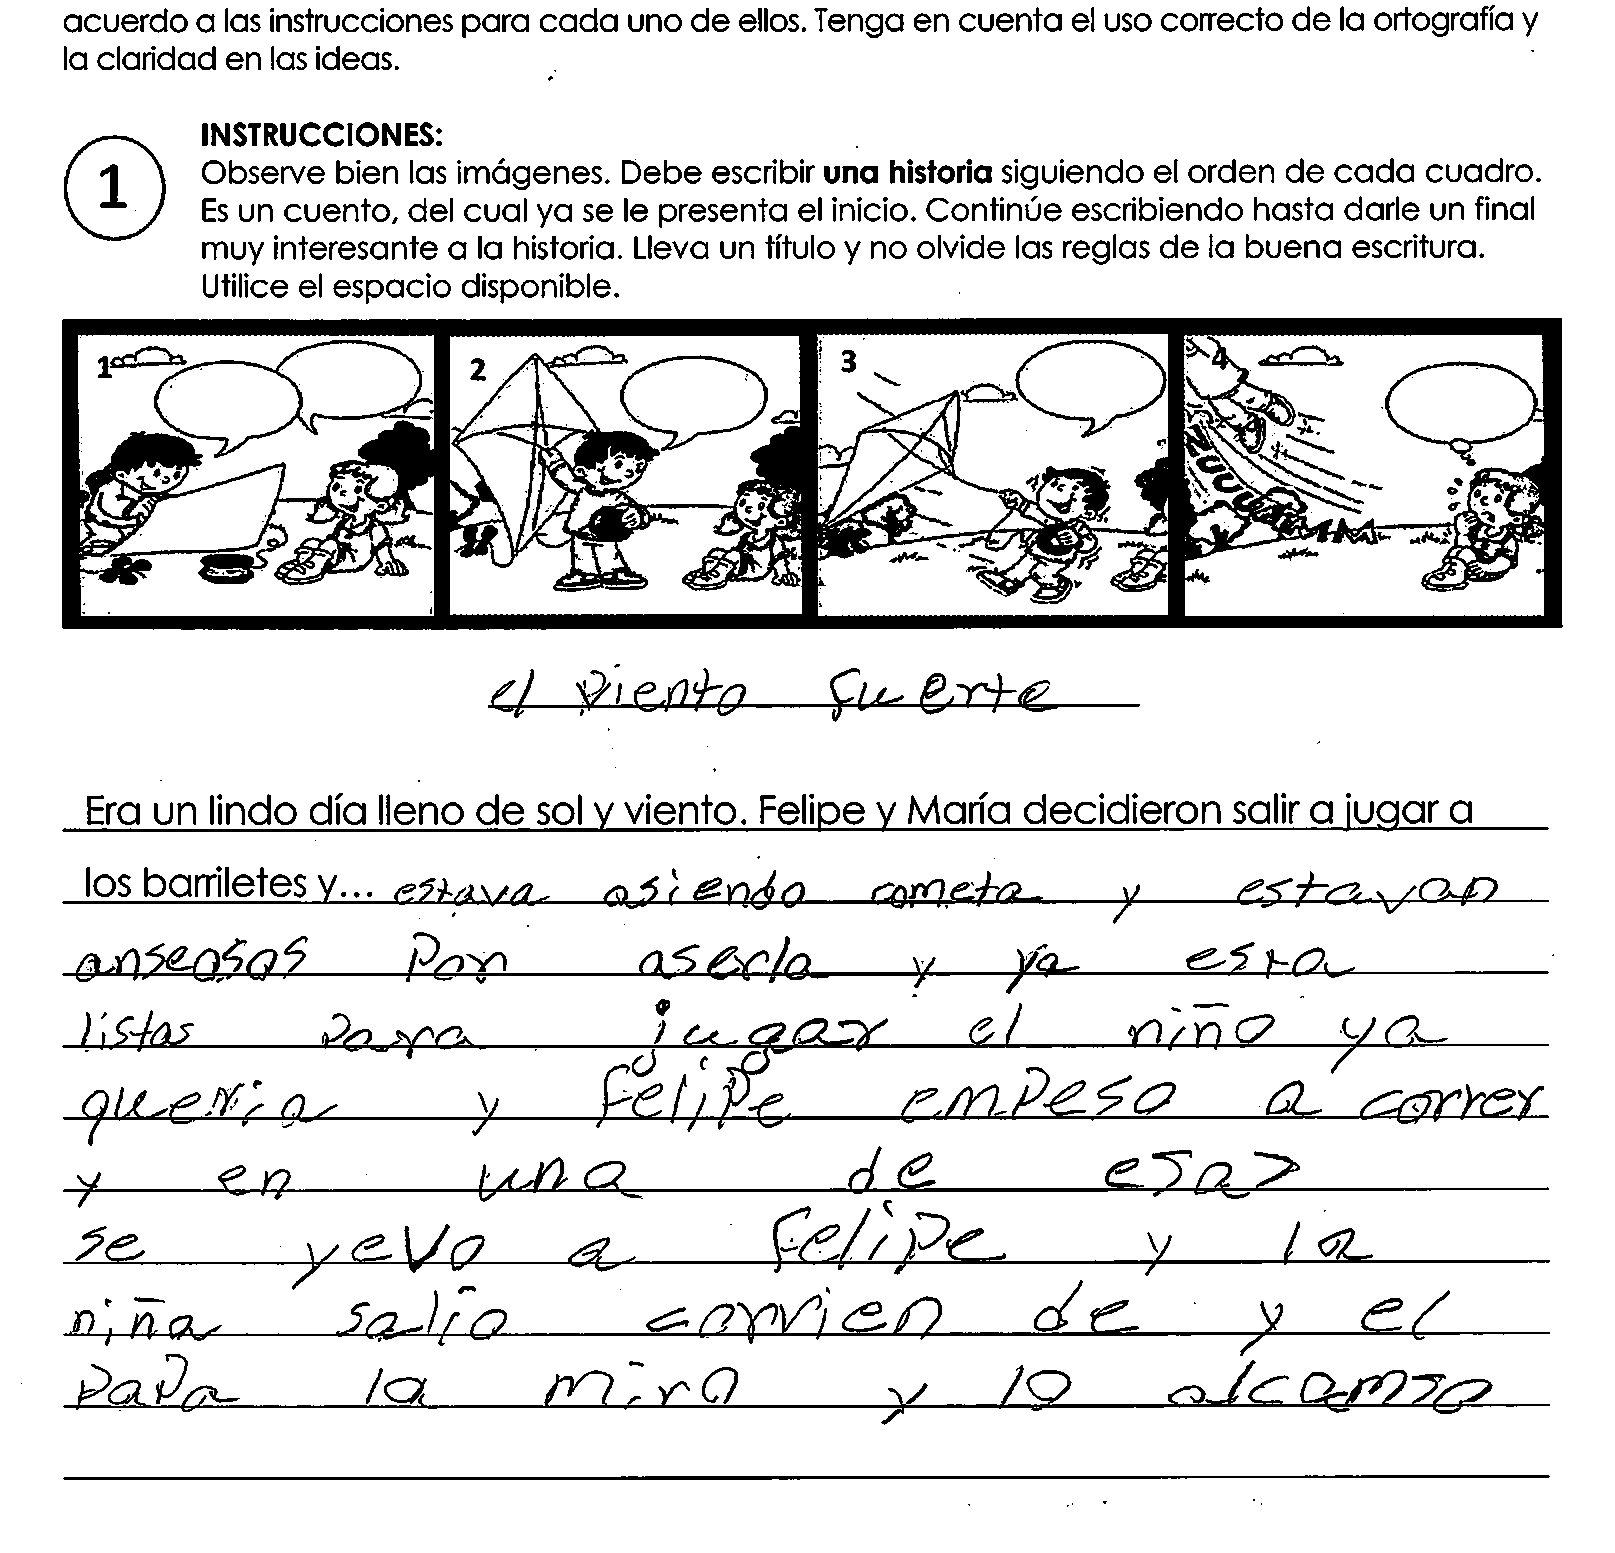 acuerdo a las instrucciones para cada uno de ellos. Tenga en cuenta el uso correcto de la ortografía y
la claridad en las ideas.
1
INSTRUCCIONES:
Observe bien las imágenes. Debe escribir una historia siguiendo el orden de cada cuadro.
Es un cuento, del cual ya se le presenta el inicio. Continúe escribiendo hasta darle un final
muy interesante a la historia. Lleva un título y no olvide las reglas de la buena escritura.
Utilice el espacio disponible.
1 2 3 4
el viento fuerte
Era un lindo día lleno de sol y viento. Felipe y María decidieron salir a jugar a
los barriletes y... estava asiendo cometa y estavan
anseosos por aserla y ya esta
listas para jugar el niño ya
queria y Felipe empeso a correr
y en una de esas
se yevo a Felipe y la
niña salio corrien de y el
papa la miro y lo alcamso